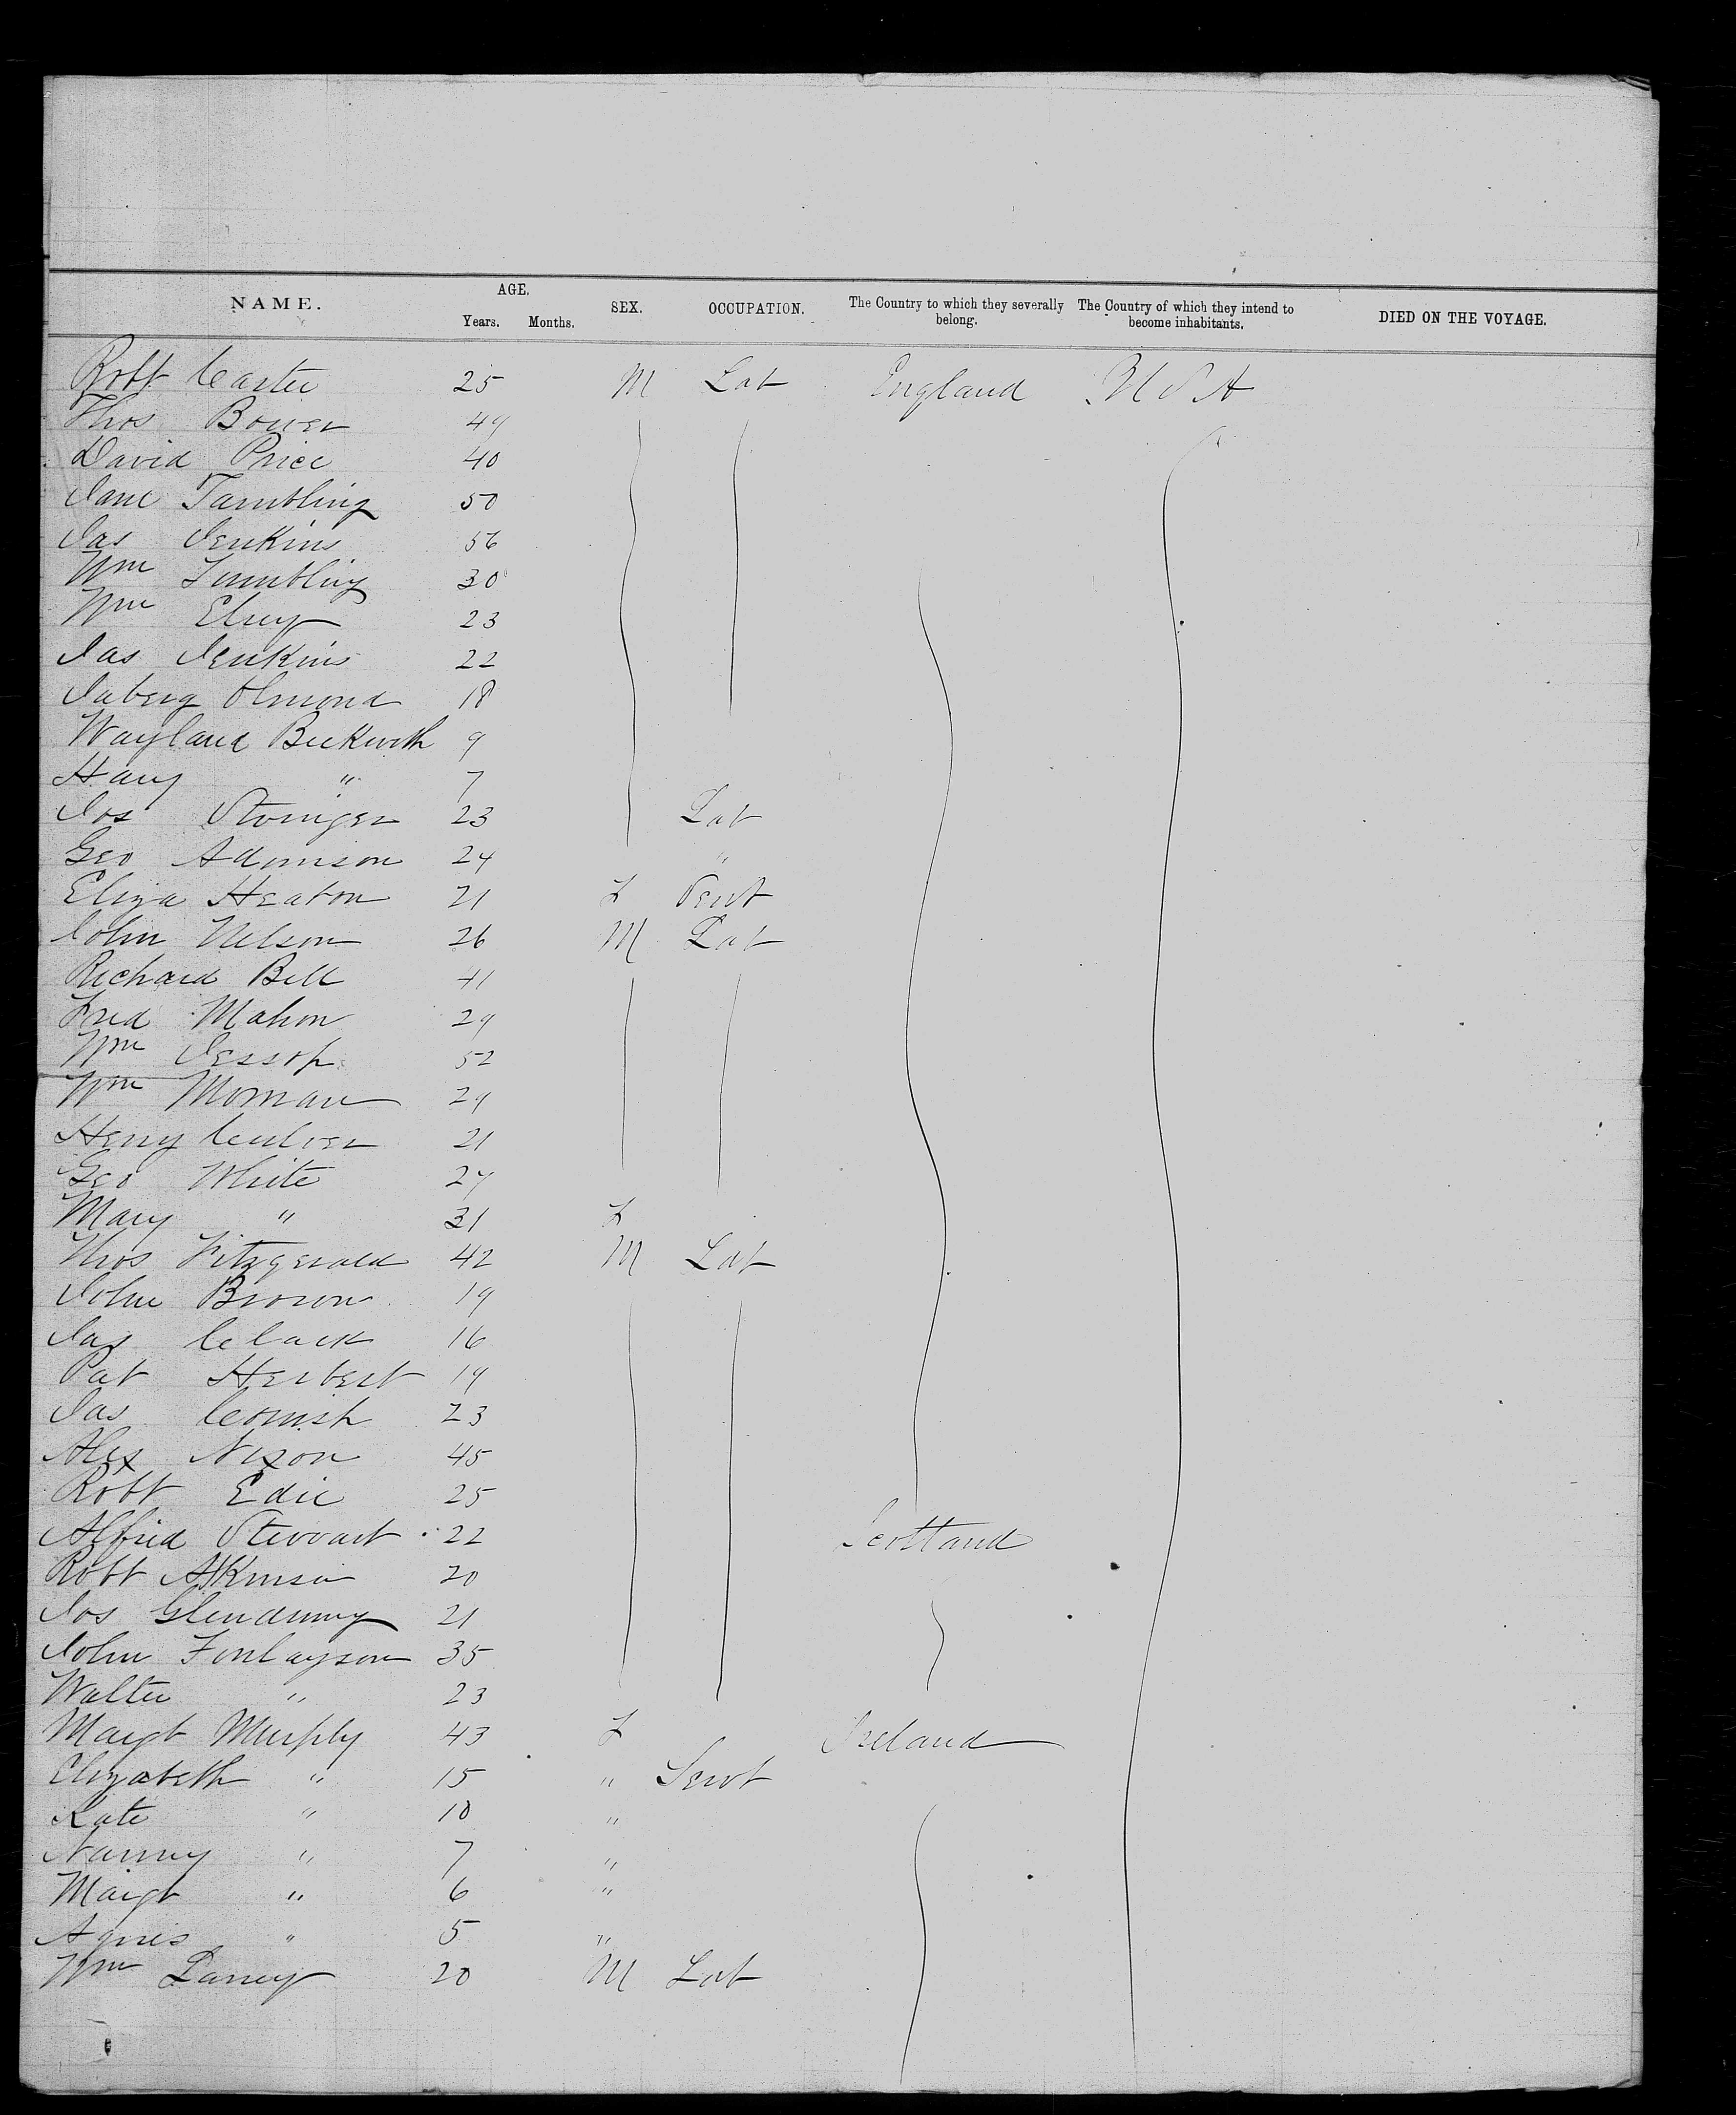 NAME. AGE. Years. Months. SEX. OCCUPATION. The Country to which they severally belong. The Country of which they intend to become inhabitants. DIED ON THE VOYAGE.
Robt Carter 25 M Lab England U S A
Thos Bower 49
David Price 40
Jane Tambling 50
Jas Jenkins 56
Wm Tambling 30
Wm Elvey 23
Jas Jenkins 22
Olmond 18
Wayland Beckwith 9
Harry " 7
Jos Stringer 23 Lab
Geo Adamson 24 "
Eliza Heaton 21 F Servt
John Nelson 26 M Lab
Richard Bell 41
Fred Mahon 29
Wm Jessop 52
Wm Morman 29
Henry Culver 21
Geo White 27
Mary " 31 F
Thos Fitzgerald 42 M Lab
John Brown 19
Jas Clark 16
Pat Herbert 19
Jas Cornish 23
Alex Nixon 45
Robt Edie 25
Alfred Stewart 22 Scotland
Robt Atkinson 20
Jos Glendinning 21
John Finlayson 35
Walter " 23
Margt Murphy 43 F Ireland
Elizabeth " 15 " Servt
Kate " 10 "
Nanny " 7 "
Margt " 6 "
Agnes " 5 "
Wm Laney 20 M Lab